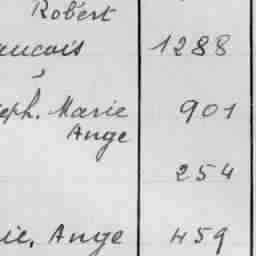 Robert
ancois 1288
eph. Marie 901
Ange
254
ie, Ange 459